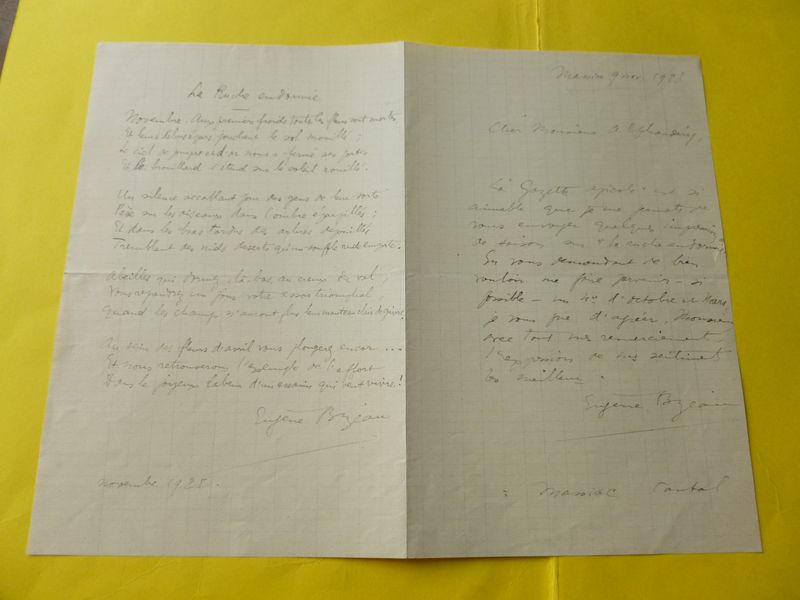 La Ruche endormie
Novembre. Aux premiers froids toutes les fleurs sont mortes,
Et leurs débris épars jonchent le sol mouillé ;
Le ciel de pourpre et d'or nous a fermé ses portes
Et le brouillard s'étend sur le soleil rouillé.
Un silence accablant
Pèse sur les oiseaux dans l'ombre éparpillés ;
Et dans les bras tordus des arbres dépouillés
Tremblent des nids déserts qu'un souffle rude emporte.
Abeilles qui dormez, là-bas, au creux du val,
Vous reprendrez un jour votre essor triomphal
Quand les champs n'auront plus leur manteau clair de givre.
Au sein des fleurs d'avril vous plongerez encor ...
Et nous retrouverons l'exemple de l'effort
Dans le joyeux labeur d'un essaim qui veut vivre !
Eugène Bizeau
novembre 1925.
Massiac 9 nov. 1925
Cher Monsieur A.
La Gazette apicole est si
aimable que je me permets de
vous envoyer quelques impressions
de saison sur "la ruche endormie"
En vous demandant de bien
vouloir me faire parvenir - si
possible - un No d'octobre et
je vous prie d'agréer, Monsieur
avec tous mes remerciements
l'expression de mes sentiments
les meilleurs.
Eugène Bizeau
Massiac Cantal